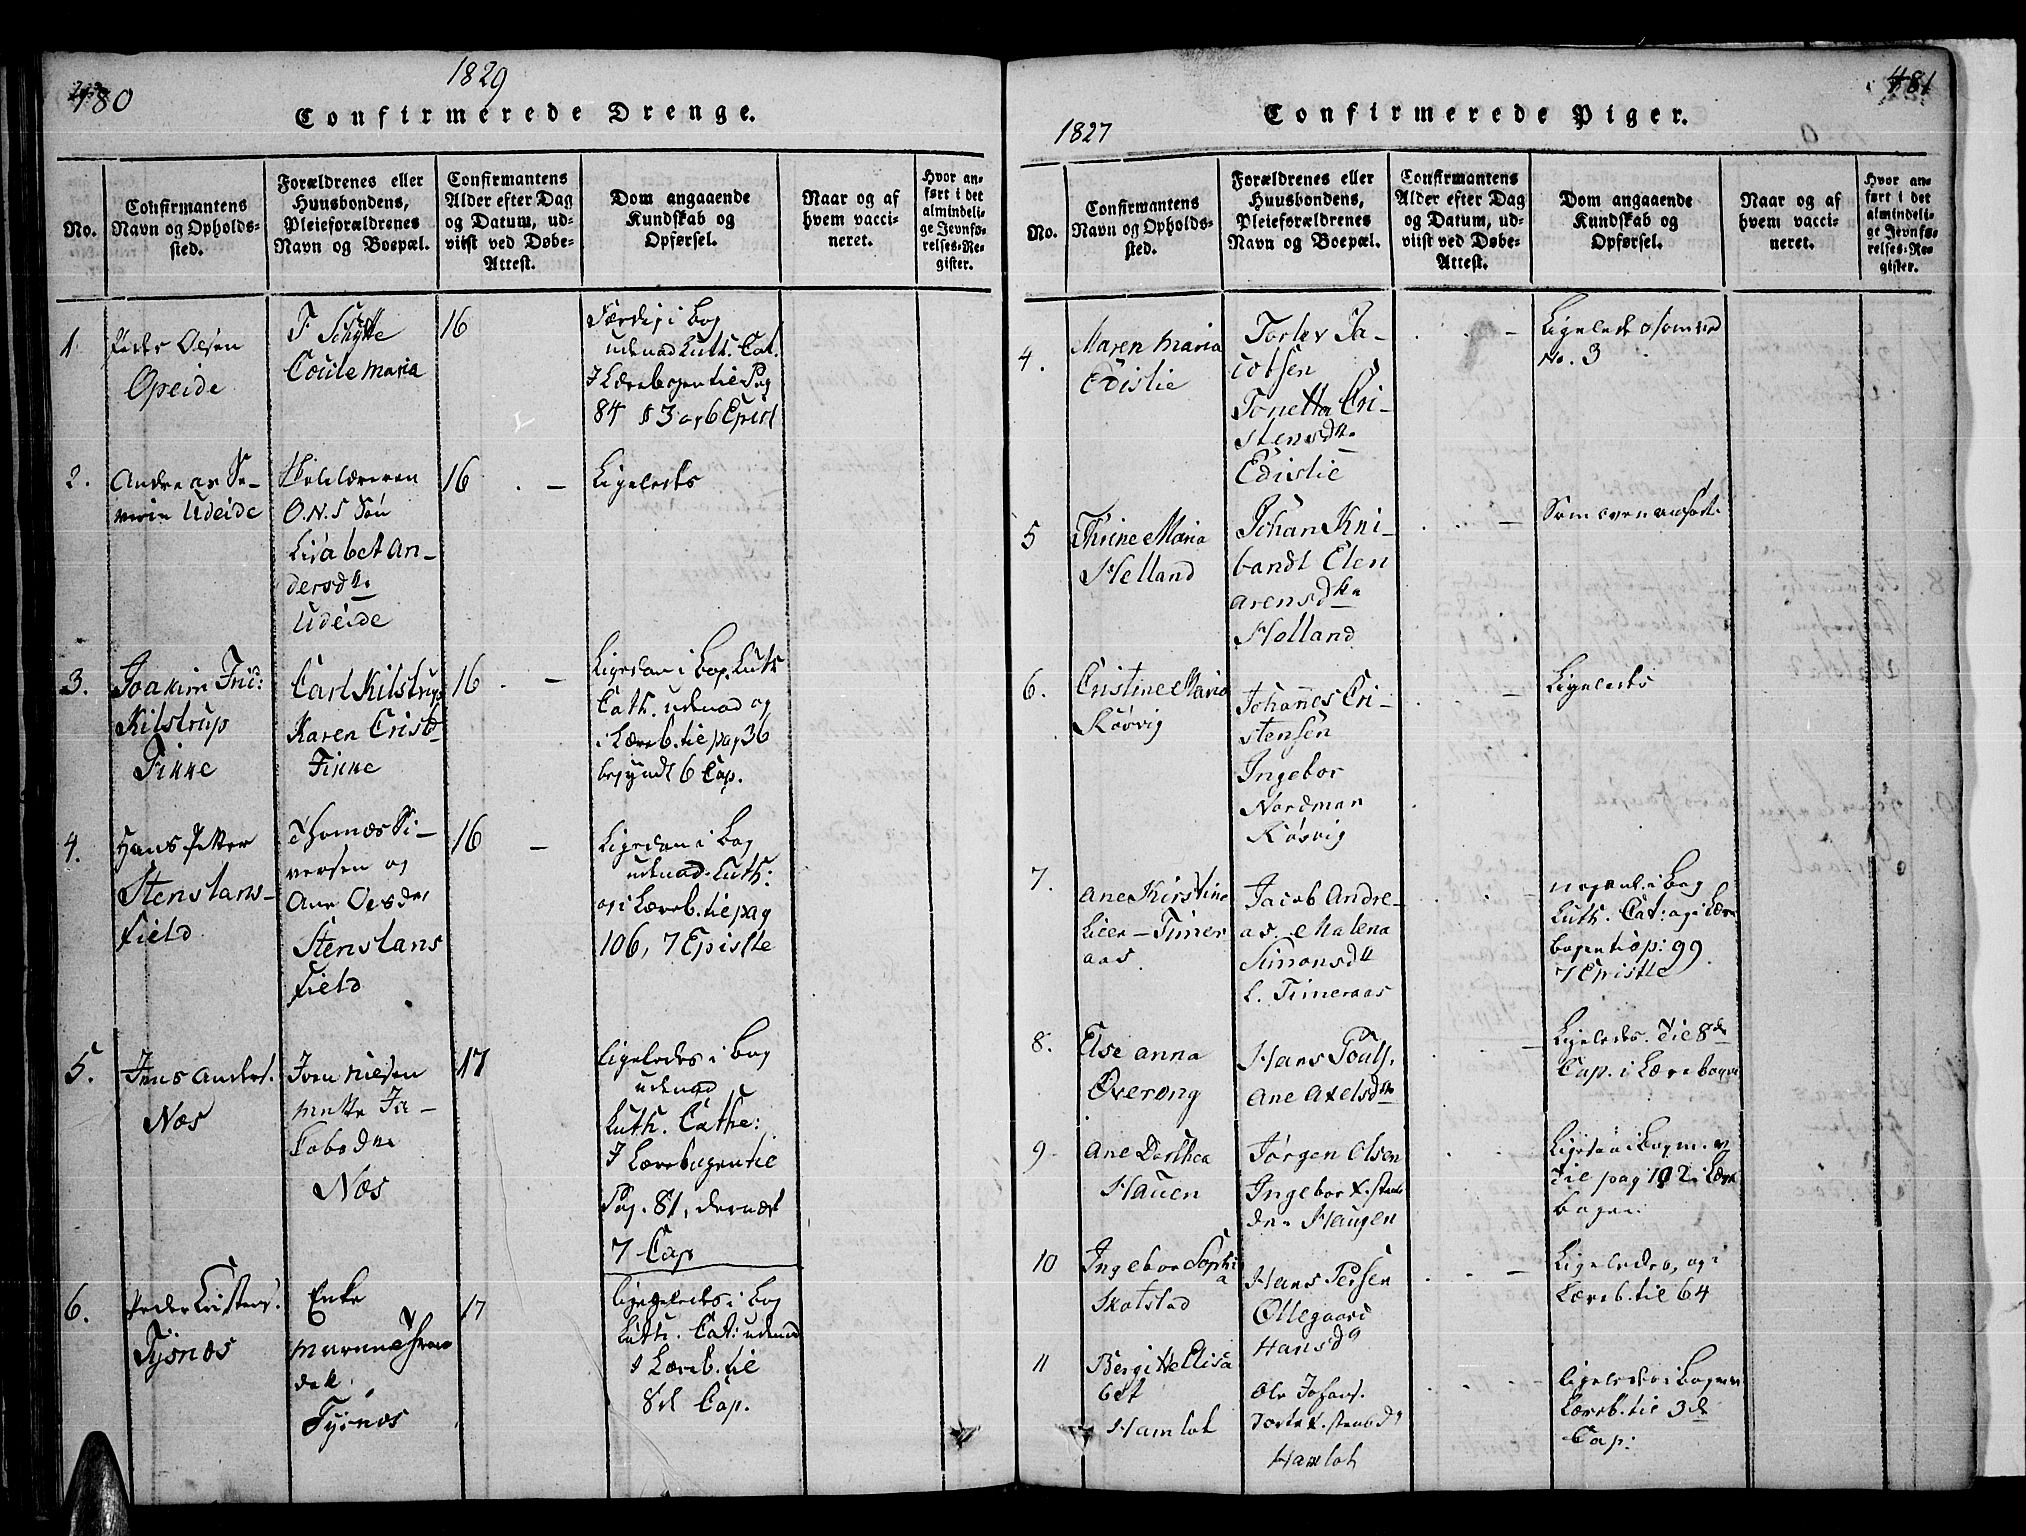 480
1829
Confirmerede Drenge.
No.
Confirmantens
Navn og Opholds-
sted.
Forældrenes eller
Huusbondens,
Pleieforældrenes
Navn og Boepæl.
Confirmantens
Alder efter Dag
og Datum, ud-
viist ved Døbe-
Attest.
Dom angaaende
Kundskab og
Opførsel.
Naar og af
hvem vacci-
neret.
Hvor an-
ført i det
almindeli-
ge Jevnfø-
relses-Re-
gister.
1
Peder Olsen
Opeide
F. Schytte
Cecilemaria
16
Færdig i Bog
udenad Luth. Cat.
I Lærebogen til Pag
84 § 3 og 6 Epist
2.
Andreas Se-
verin Udeide
Skolelæreren
O. N. S Søn
Lisabet An-
dersdtr.
Udeide
16 . —
Ligeleds
3.
Joakim Frid:
Kilstrup
Finne
Carl Kilstrup
Karen Cristd
Finne
16 . —
Ligedan i Bog. Luth
Cath. udenad og
i Læreb. til pag 36
begyndt 6 Cap.
4.
Hans Petter
Stenslans-
field
Thomas Si-
versen og
Ane Olsdr
Stenslans
field
16 —
Ligedan i Bog
udenad Luth:
og i Læreb. til pag
106, 7 Epistle
5.
Jens Anders.
Næs
Iven Nielsen
Mette Ja-
cobsdr
Næs
17
ligeledes i Bog
udenad
Luth. Cathe:
I Lærebogen til
Pag. 81, dernæst
7 Cap
6.
Peder Cristens.
Tysnæs
Enke
Marene
Tysnæs
17
ligeledes i Bog
Luth. Cat: udenad
I Læreb. til
8d Cap.
481
1827
Confirmerede Piger.
No.
Confirmantens
Navn og Opholds-
sted.
Forældrenes eller
Huusbondens,
Pleieforældrenes
Navn og Boepæl.
Confirmantens
Alder efter Dag
og Datum, ud-
viist ved Døbe-
Attest.
Dom angaaende
Kundskab og
Opførsel.
Naar og af
hvem vacci-
neret.
Hvor an-
ført i det
almindeli-
ge Jevnfø-
relses-Re-
gister.
4.
Maren Maria
Edislie
Torlev Ja-
cobsen
Tonetta Cri-
stensdtr.
Edislie
. . —
Ligeleds som ved
No. 3
5
Thrine Maria
Helland
Johan Kni-
bandt Elen
arensdtr
Holland
. . —
Som oven anført
6.
Cristine Maria
Røsvig
Johannes Cri-
stensen
Ingebor
Nordman
Røsvig
. . —
Ligeleds
7.
Ane Kirstine
Lien - Timer
aas
Jacob Andre-
as. Malena
Simonsdtr
L. Timeraas
. . —
i Bog
Luth. Cat: og i Lære
bogen til p: 99
7 Epistle
8.
Else Anna
Overong
Hans Pouls.
Ane Axelsdtr
. . —
Ligeleds. Til 8de
Cap. i Lærebogen
9
Ane Dorthea
Hauen
Jørgen Olsen
Ingebor
dr. Haugen
. . —
Ligedan i Bogen. og
til pag 102 i Lære
bogen
10
Ingebor Sophi
a
Skotstad
Hans Persen
Øllegaard
Hansd
. . —
Ligeledes, og i
Læreb. til 64
11
Bergitte Elisa
bet
Hamlot
Ole Johans.
Hamlot
. . —
ligeledes i Bogen
Læreb. til 3d
Cap: